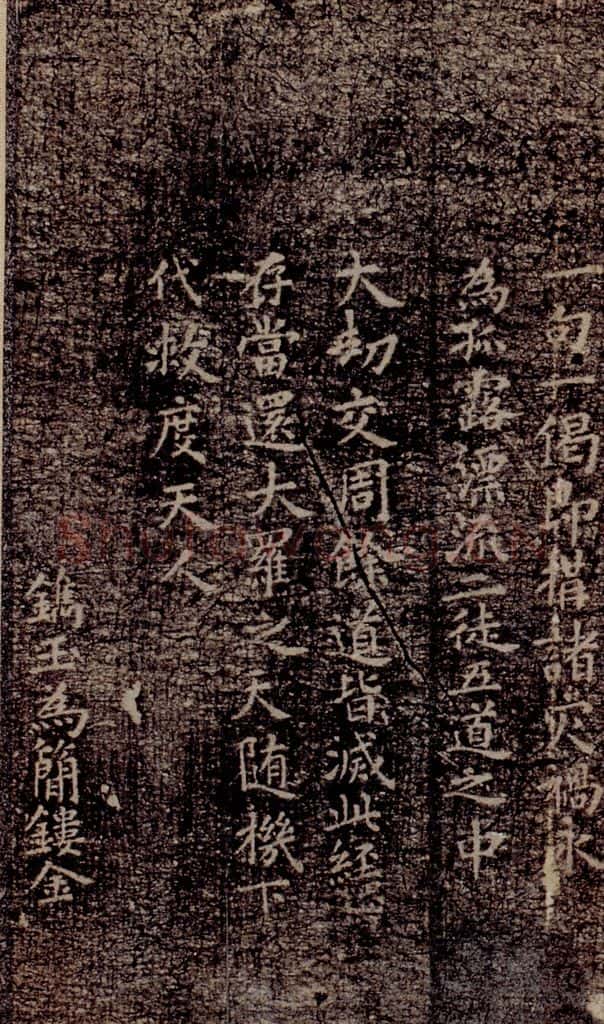 一句一偈即猎諸灾禍永
為孤露漂流二徒五道之中
大劫交周餘道皆滅此經
存當還大羅之天随機下
代救度天人
鐫玉為簡鏤金